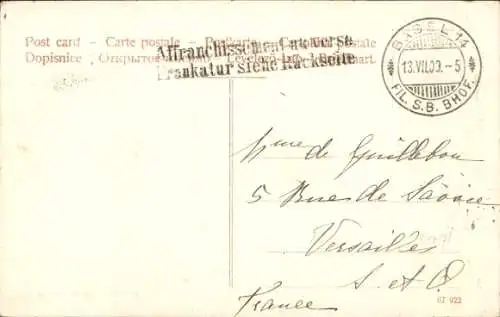 Post card – Carte postale – Postkarte – Cartolina postale
Dopisnice Открытое
Affranchissement au verso
Frankatur siehe Rückseite
BASEL 14
13.VII.09.-5
FIL. S.B. BHOF.
Mme de Guillebon
5 Rue de Savoie
Versailles
S. et O.
France
67 922